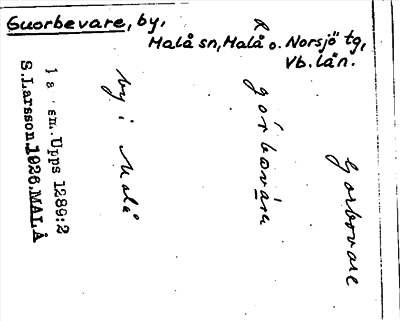 Guorbevare, by,
Malå sn, Malå o. Norsjö tg,
Vb. län.
Gorbovare
R
górbovåra
by i Malå
em. Upps 1289:2
S. Larsson. 1926. MALÅ